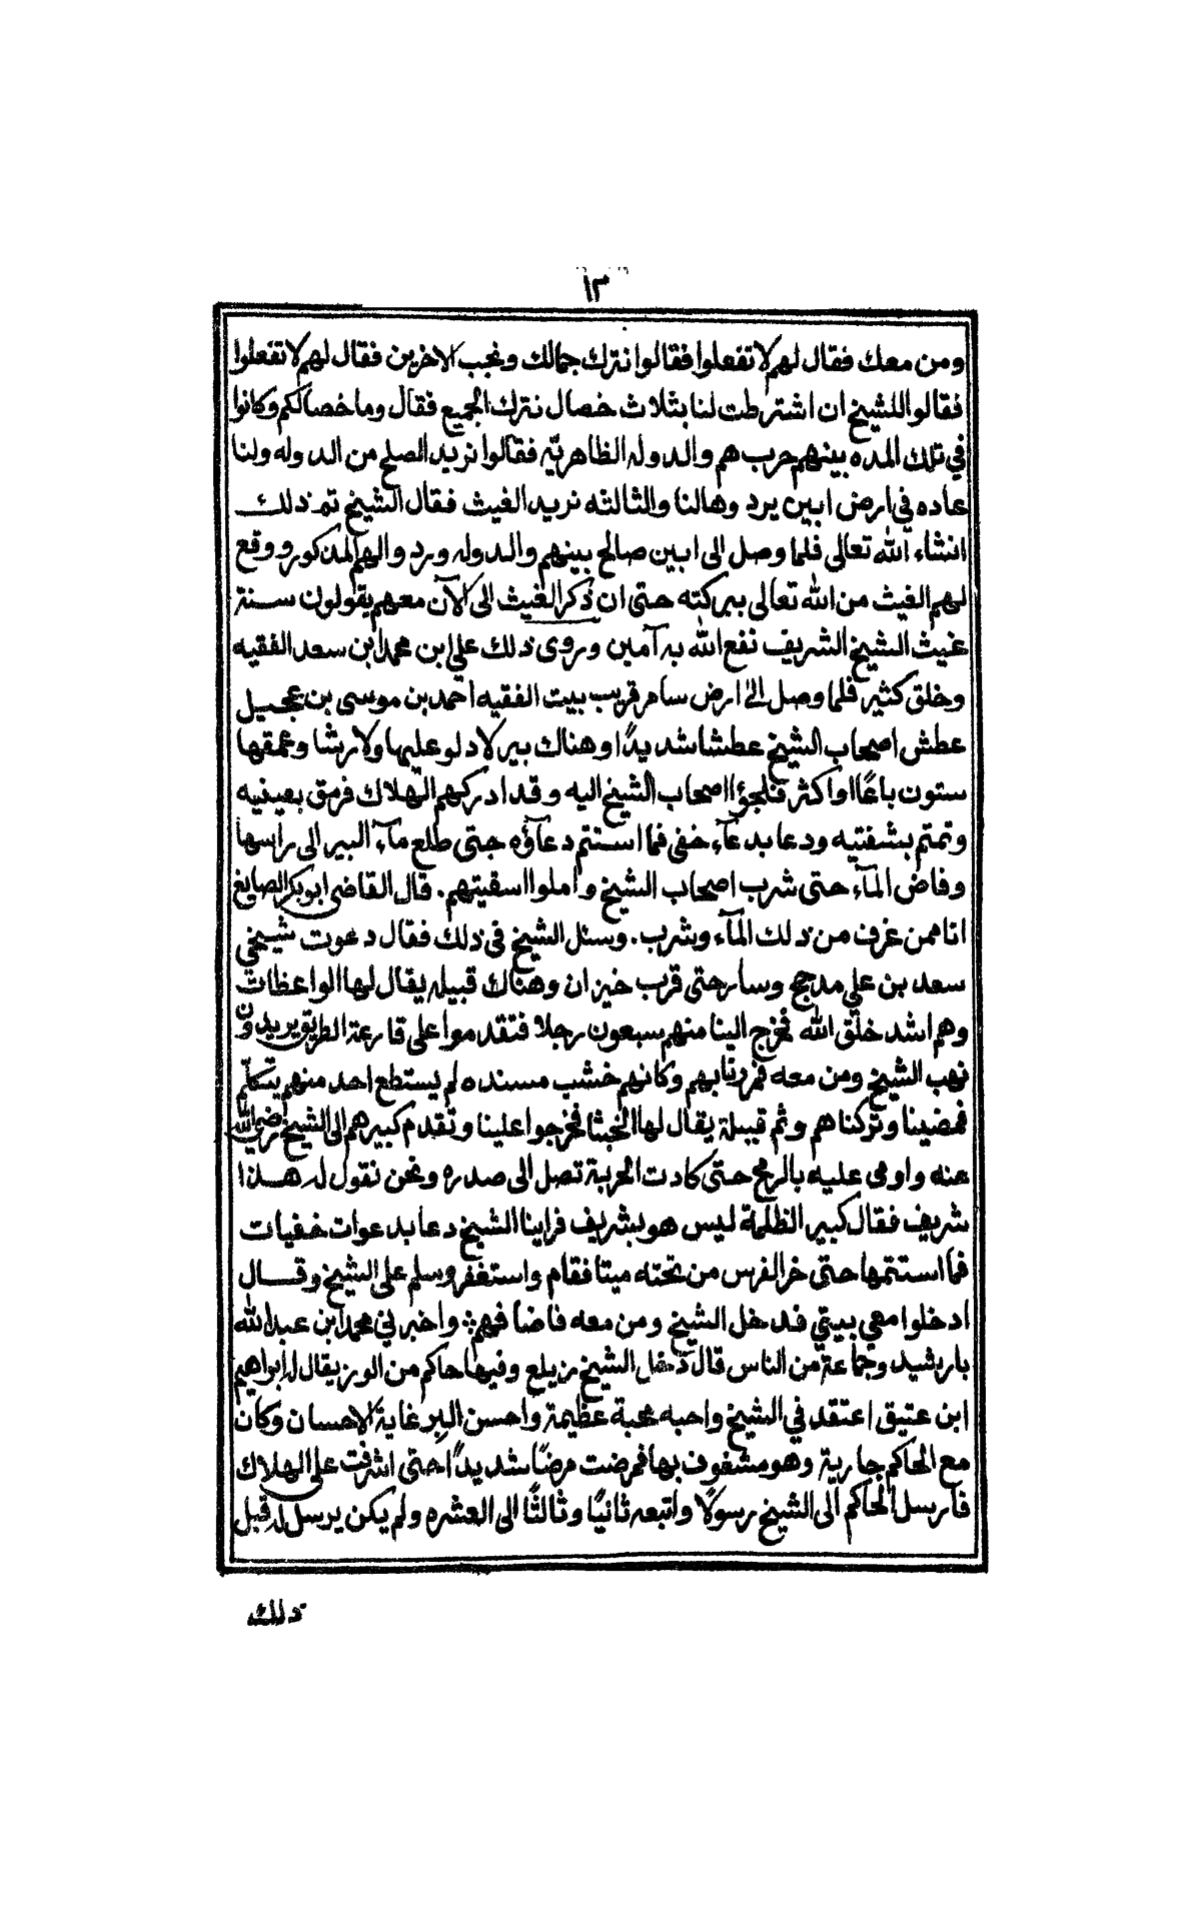 ١٣
ومن معك فقال لهم لا تفعلوا فقالوا نترك جمالك ونجب الاخرين فقال لهم لا تفعلوا
فقالوا للشيخ ان اشترطت لنا بثلاث خصال نترك الجميع فقال وما خصالكم وكانوا
في تلك المده بينهم حرب هم والدوله الظاهريّه فقالوا نريد الصلح من الدوله ولنا
عاده في ارض ابين يرد وهالنا والثالثه نريد الغيث فقال الشيخ تم ذلك
انشاء الله تعالى فلما وصل الى ابين صالح بينهم والدوله وردوا لهم المذكور ووقع
لهم الغيث من الله تعالى ببركته حتى ان ذكر الغيث الى الآن معهم يقولون سنة
غيث الشيخ الشريف نفع الله به آمين وروى ذلك علي ابن محمد ابن سعد الفقيه
وخلق كثير فلما وصل الى ارض سامر قريب بيت الفقيه احمد بن موسى بن عجيل
عطش اصحاب الشيخ عطشا شديدًا وهناك بير لا دلو عليها ولا رشا وعمقها
ستون باعًا او اكثر فلجؤا اصحاب الشيخ اليه وقد ادركهم الهلاك فرمق بعينيه
وتمتم بشفتيه ودعا بدعآء خفي فما استتم دعآؤه حتى طلع مآء البير الى راسها
وفاض المآء حتى شرب اصحاب الشيخ واملوا اسقيتهم. قال القاضى ابو بكر الصايغ
انا ممن غرف من ذلك المآء وشرب. وسئل الشيخ في ذلك فقال دعوت شيخي
سعد بن علي مدحج وسار حتى قرب خنزان وهناك قبيله يقال لها الواعظات
وهم اشد خلق الله فخرج الينا منهم سبعون رجلا فتقدموا على قارعة الطريق يريدون
نهب الشيخ ومن معه فمررنا بهم وكانهم خشب مسنده لم يستطع احد منهم يتكلّم
فمضينا وتركناهم وثم قبيلة يقال لها الخبثا فخرجوا علينا وتقدم كبيرهم الى الشيخ رضي الله
عنه واومى عليه بالرمح حتى كادت الحربة تصل الى صدره ونحن نقول له هذا
شريف فقال كبير الظلمة ليس هو بشريف فراينا الشيخ دعا بدعوات خفيات
فما استتمها حتى خر الفرس من تحته ميتا فقام واستغفر وسلم على الشيخ وقال
ادخلوا معي بيتي فدخل الشيخ ومن معه فاضافهم واخبرني محمد ابن عبد الله
بارشيد وجماعة من الناس قال دخل الشيخ زيلع وفيها حاكم من الوزر يقال له ابراهيم
ابن عتيق اعتقد في الشيخ واحبه محبة عظيمة واحسن البر غاية الاحسان وكان
مع الحاكم جارية وهو مشغوف بها فمرضت مرضًا شديدًا حتى اشرفت على الهلاك
فارسل الحاكم الى الشيخ رسولًا واتبعه ثانيًا وثالثًا الى العشره ولم يكن يرسل له قبل
ذلك